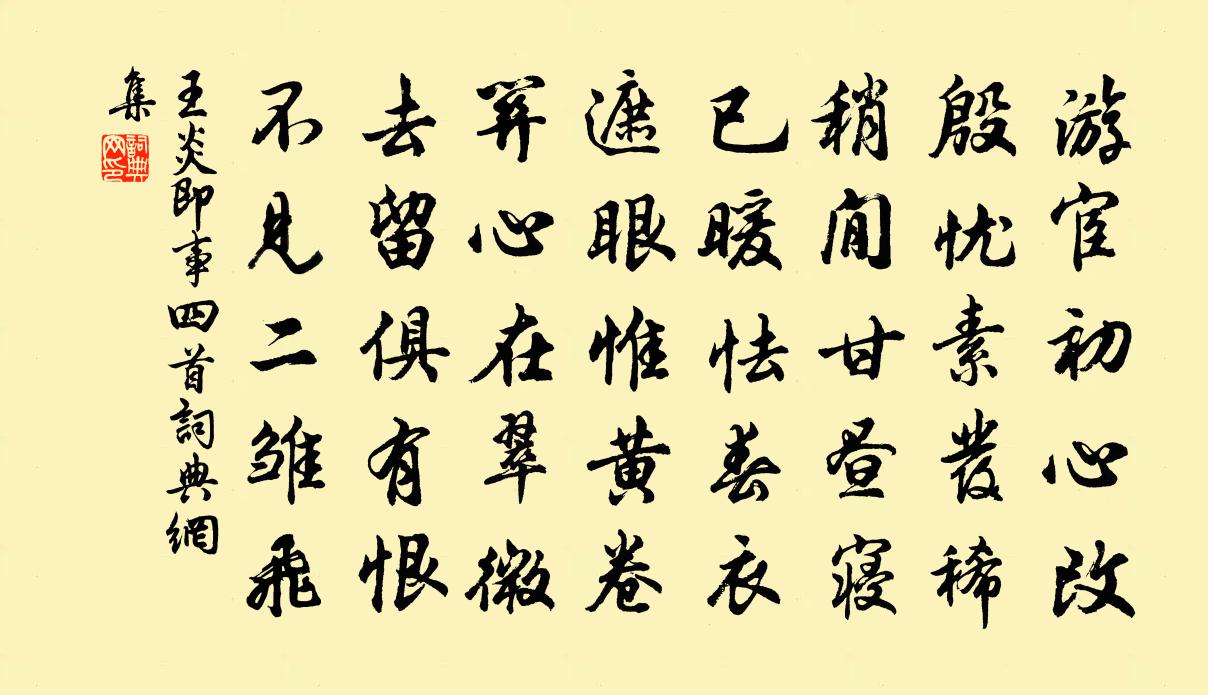 游宦初心改
殷忧素發稀
稍闲甘昼寝
已暖怯春衣
遮眼惟黄卷
关心在翠微
去留俱有恨
不见二雏飛
王炎即事四首詞典網
集
詞典网印